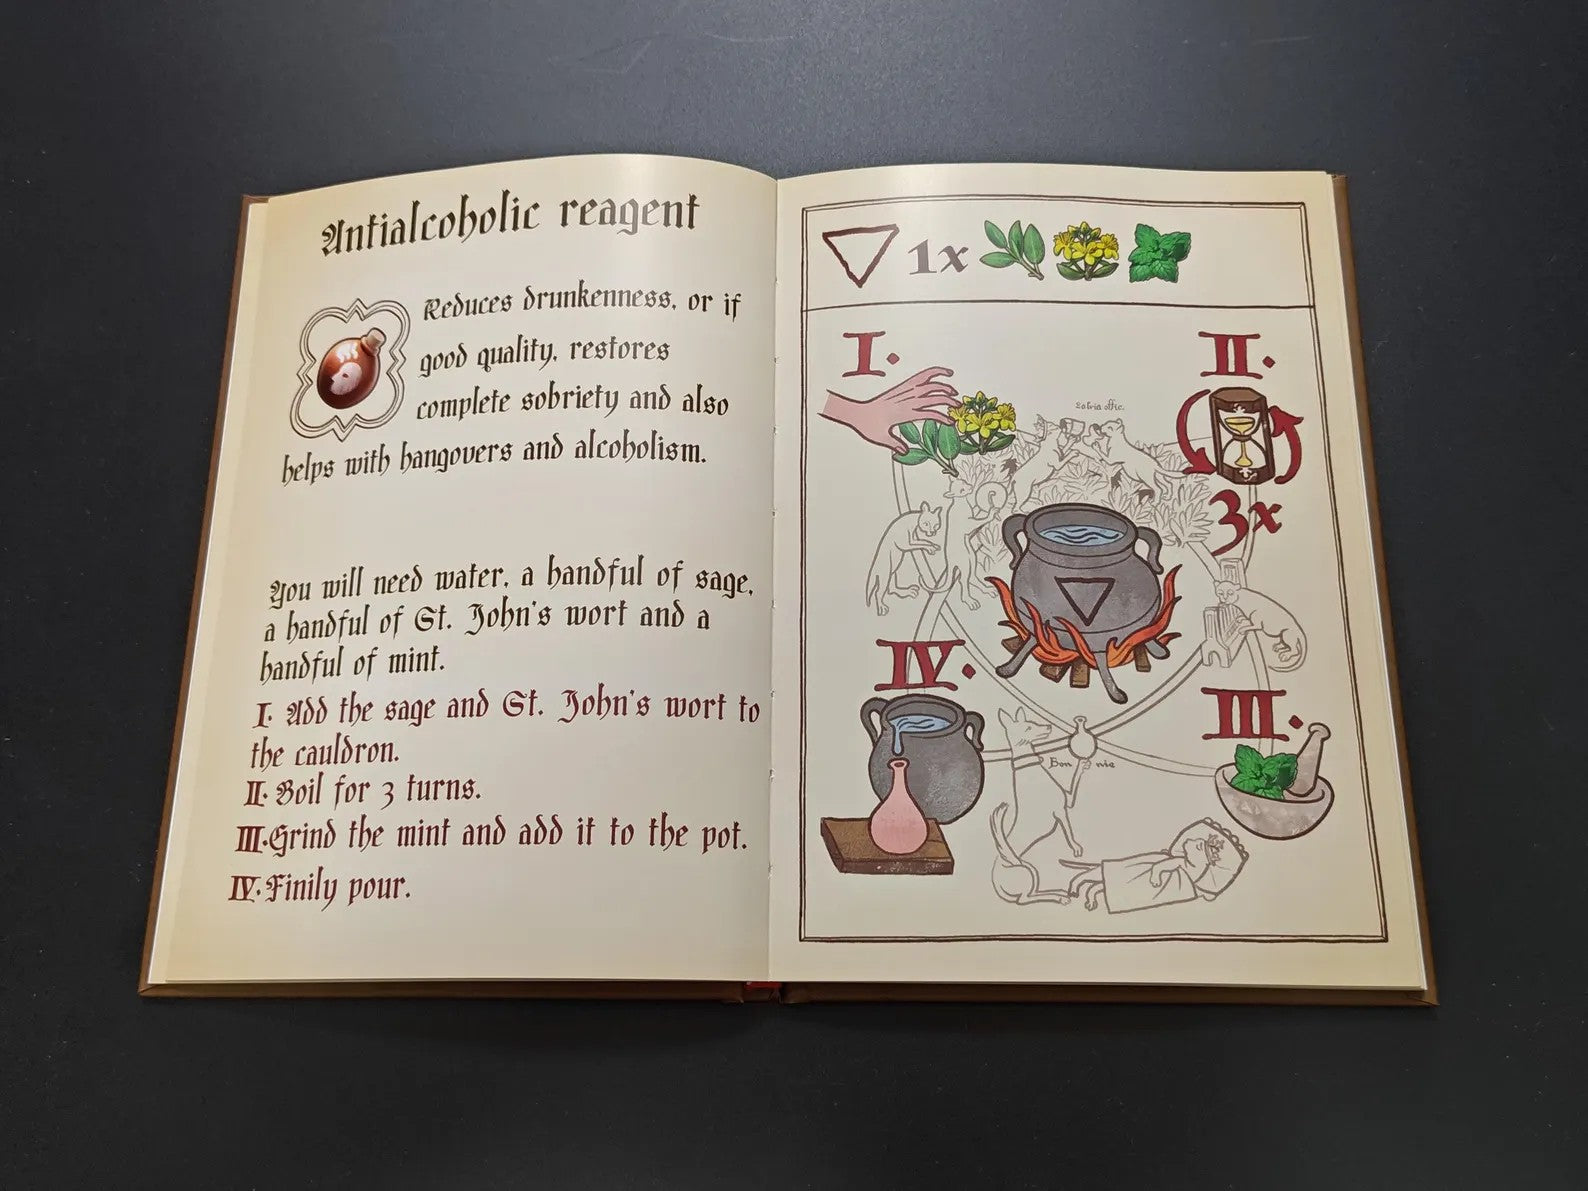 Antialcoholic reagent
Reduces drunkenness, or if
good quality, restores
complete sobriety and also
helps with hangovers and alcoholism.
You will need water, a handful of sage,
a handful of St. John's wort and a
handful of mint.
I. Add the sage and St. John's wort to
the cauldron.
II. Boil for 3 turns.
III. Grind the mint and add it to the pot.
IV. Finily pour.
1x
I.
II.
Salvia offic.
3x
IV.
III.